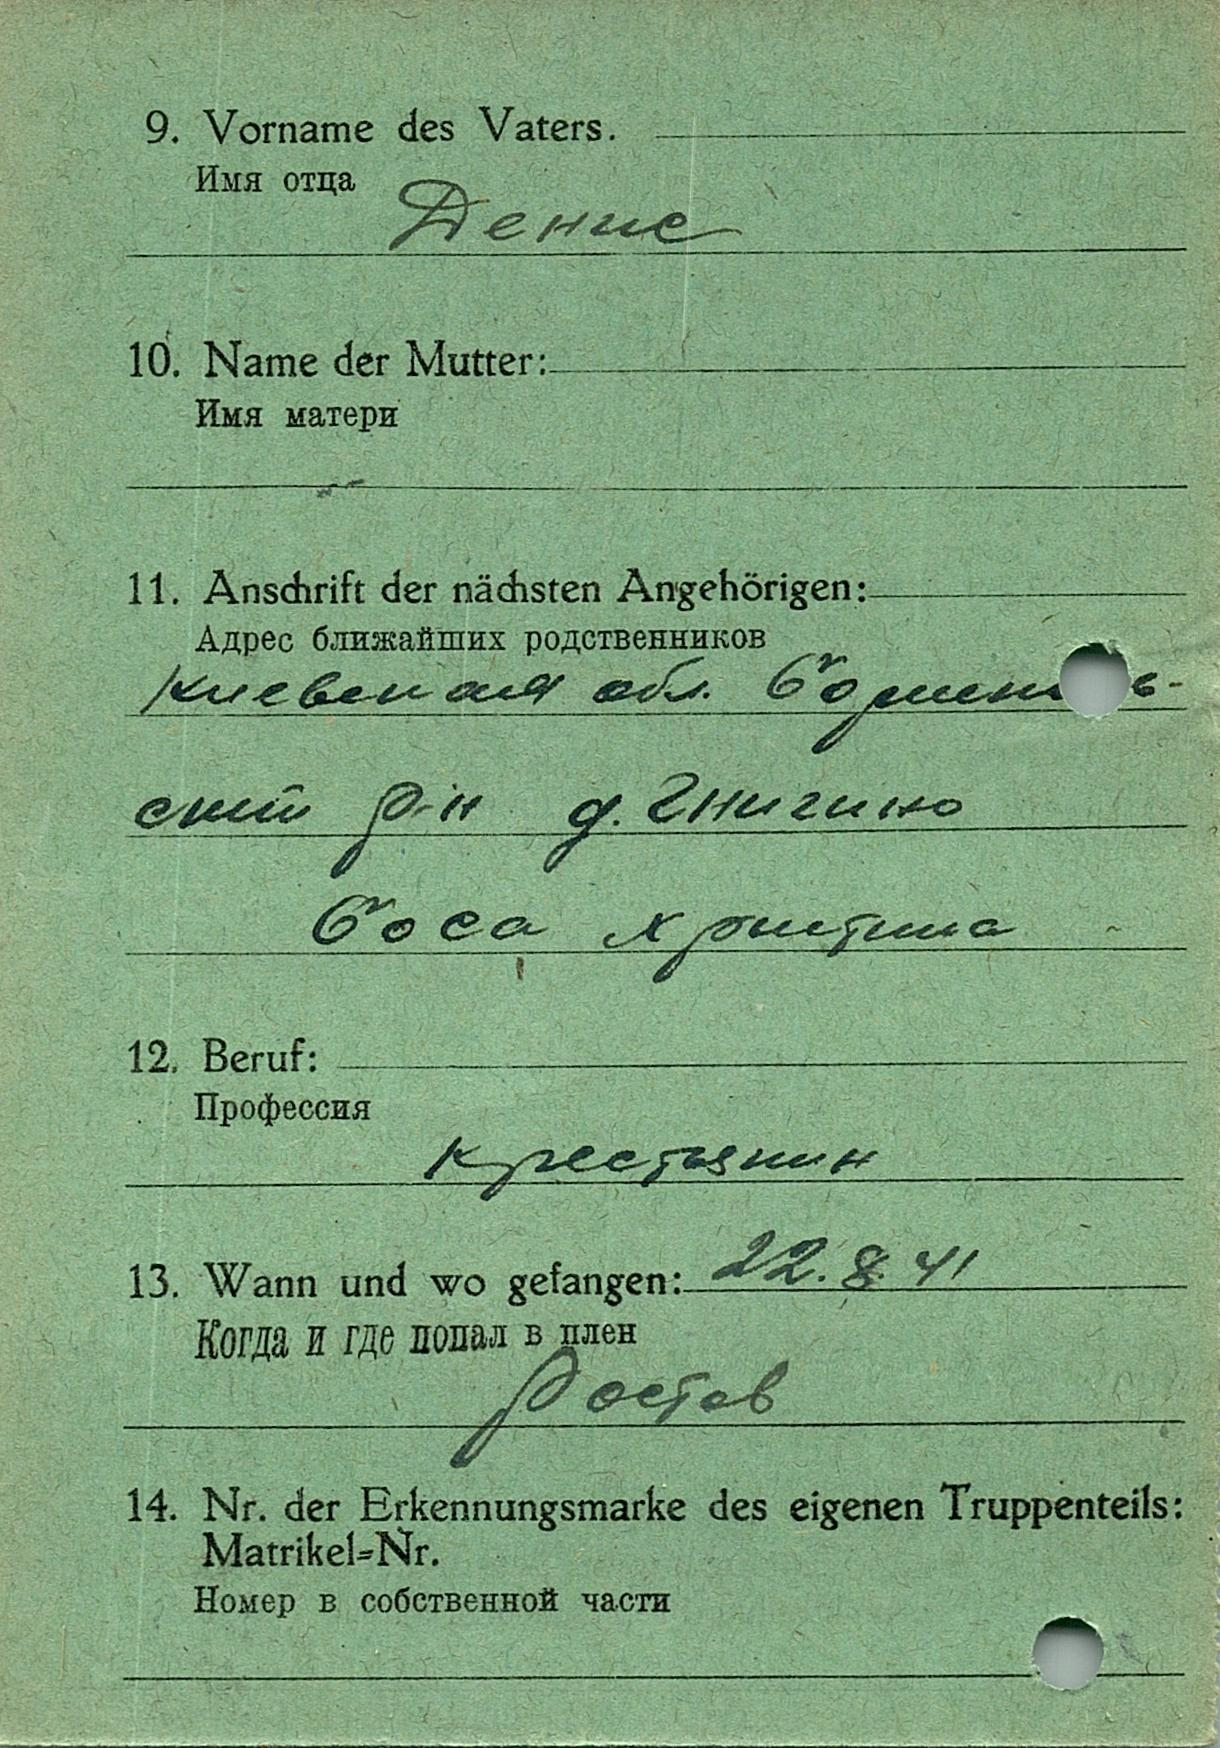 9. Vorname des Vaters.
Имя отца
Денис
10. Name der Mutter:
Имя матери
11. Anschrift der nächsten Angehörigen:
Адрес ближайших родственников
Киевская обл.
ский р-н д. Гнигино
Боса Христина
12. Beruf:
Профессия
крестьянин
13. Wann und wo gefangen: 22.8.41
Когда и где попал в плен
Ростов
14. Nr. der Erkennungsmarke des eigenen Truppenteils:
Matrikel-Nr.
Номер в собственной части